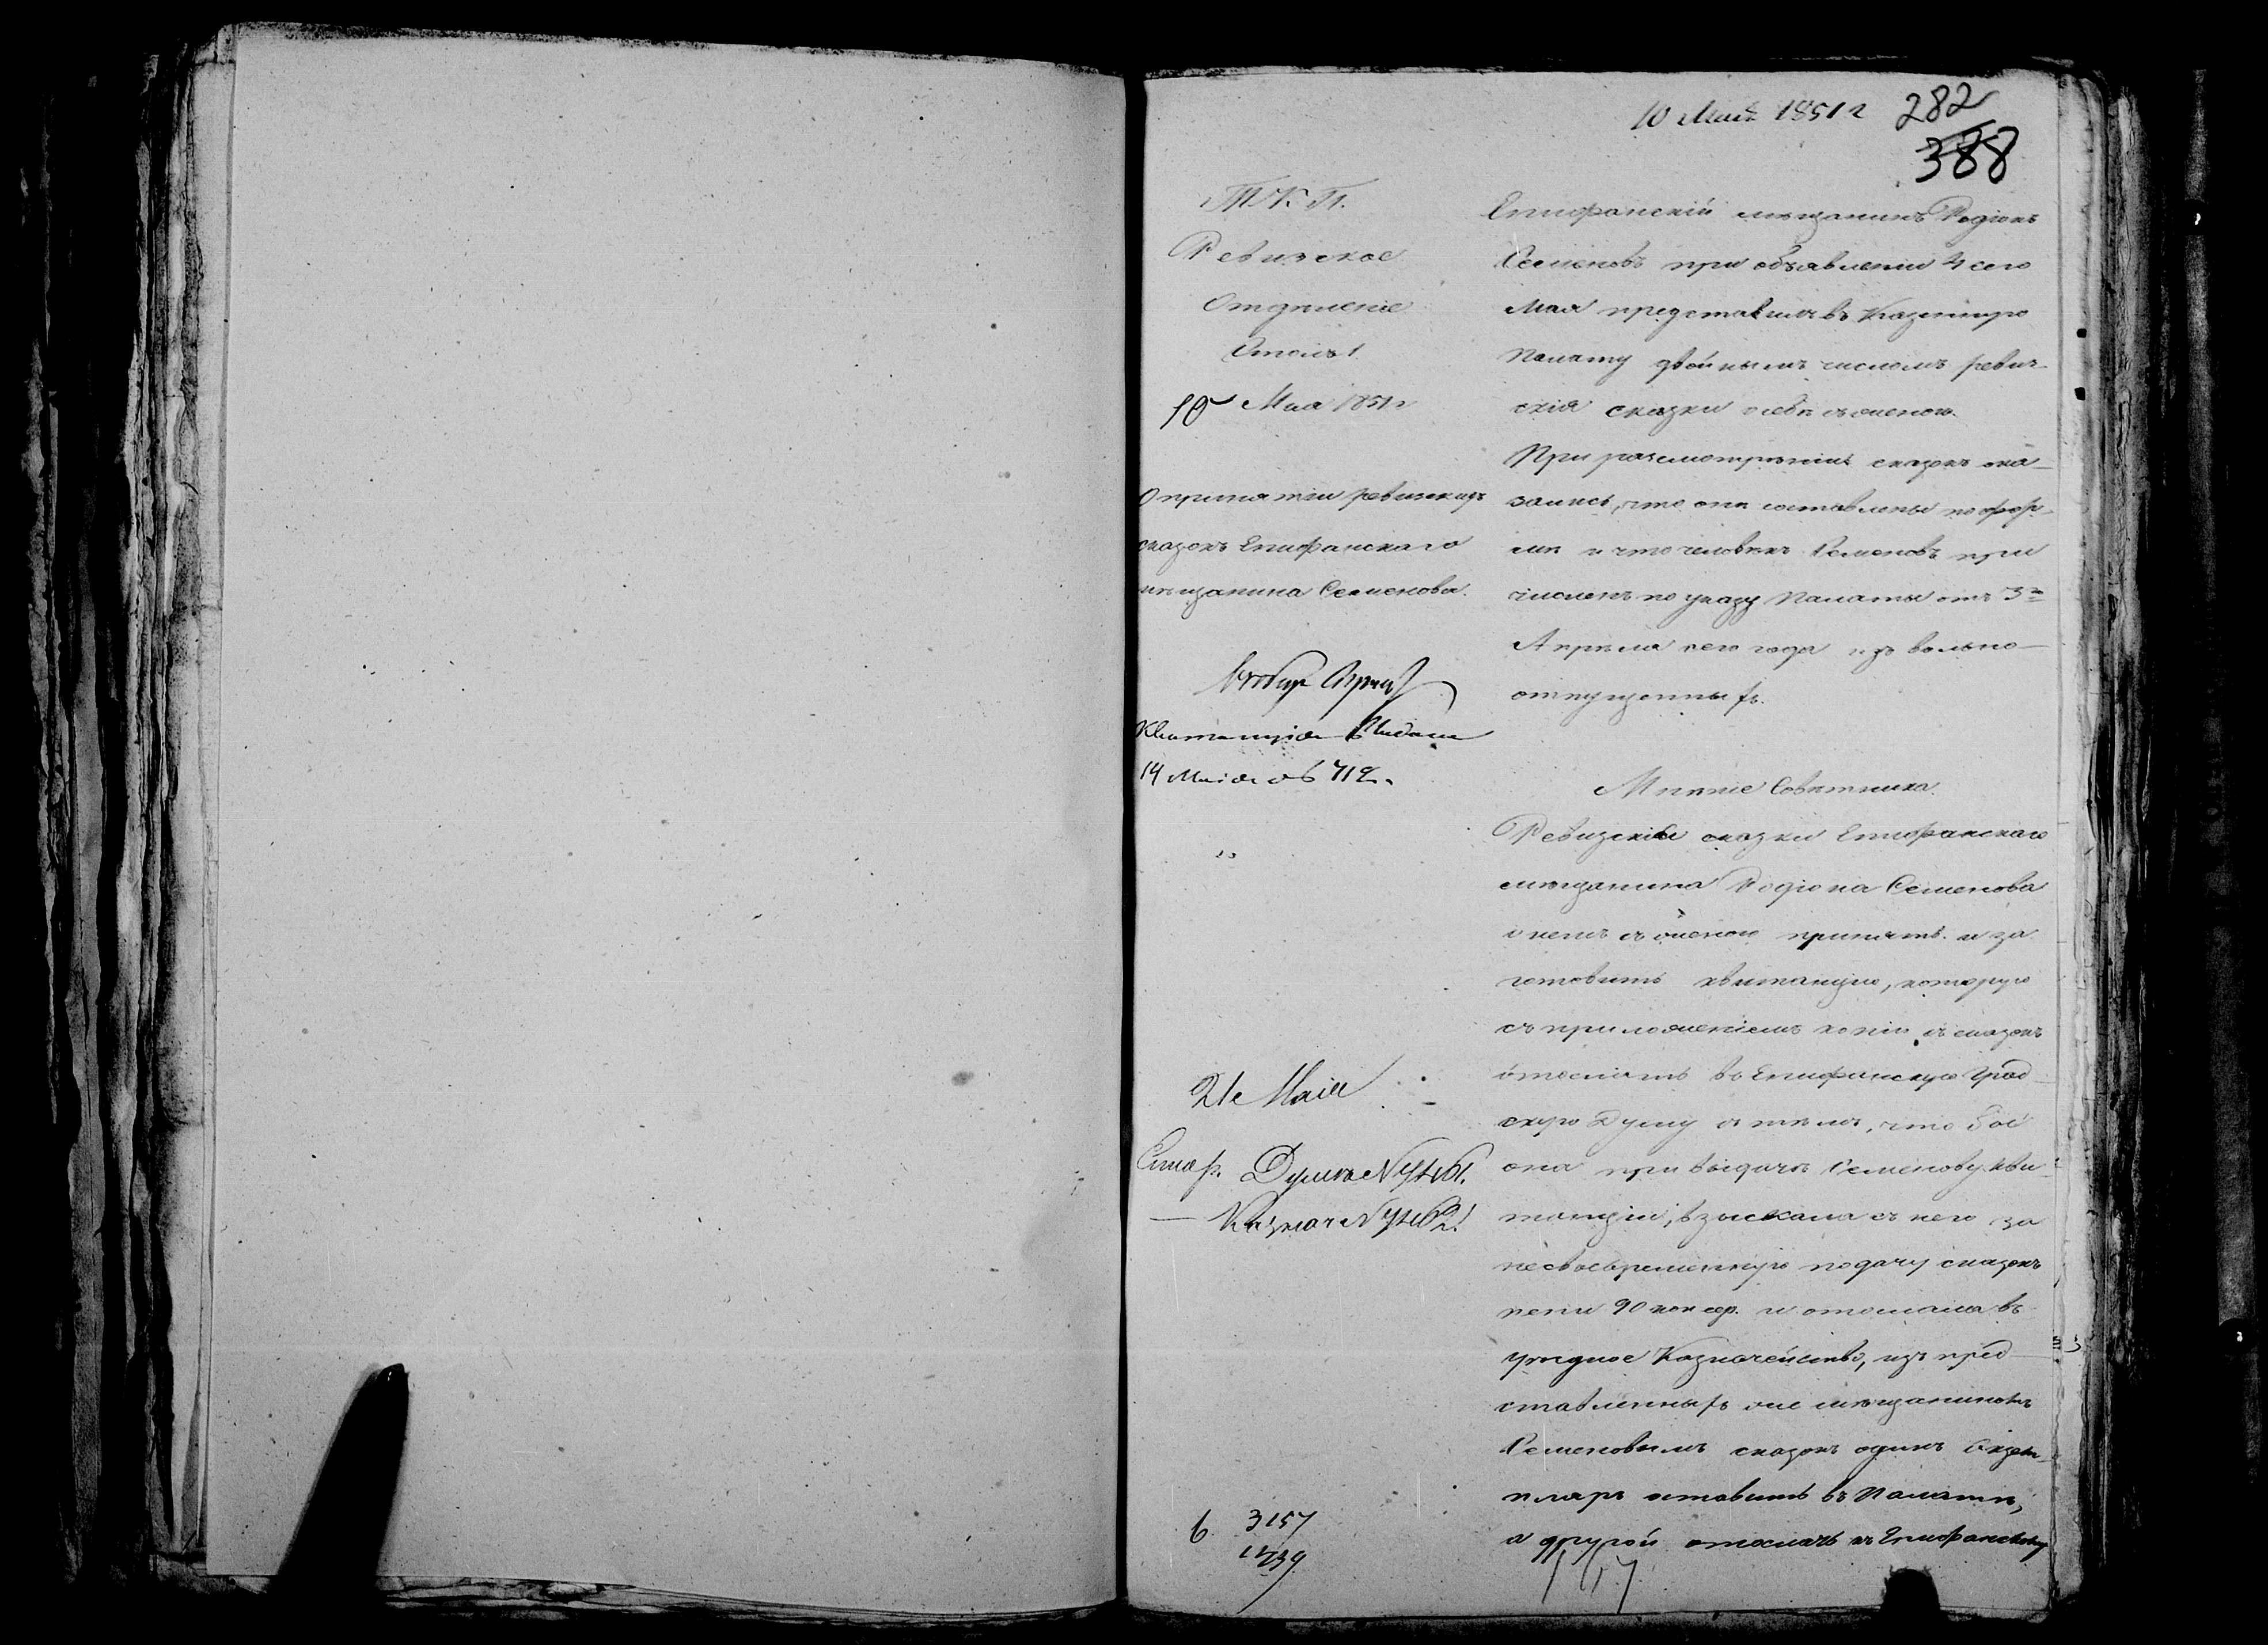 10 Мая 1851 г
282
388
Т. К. П.
Ревизское
Отдѣленіе
Столъ 1.
10 Мая 1851 г
О принятіи ревизскихъ
сказокъ Епифанскаго
мѣщанина Семенова.
Квитанція выдана
14 Маія
21 Маія
Епиф. Думѣ №
Казнач №
6. 3157
1739
Епифанскій мѣщанинъ Родіонъ
Семеновъ при объявленіи 4 сего
Мая представилъ въ Казенную
Палату двойнымъ числомъ ревиз-
скія сказки о себѣ съ женою.
При разсмотрѣніи сказокъ ока-
залось, что онѣ составлены по фор-
мѣ и что человѣкъ Семеновъ при
численъ по указу Палаты отъ 3го
Апрѣля сего года изъ вольно-
отпущенныхъ.
Мнѣніе Совѣтника.
Ревизскія сказки Епифанскаго
мѣщанина Родіона Семенова
о немъ съ женою принять и за
готовить квитанцію, которую
съ приложеніемъ копіи съ сказокъ
отослать въ Епифанскую Град-
скую Думу съ тѣмъ, чтобы
она при выдачѣ Семенову кви-
танціи, взыскала съ него за
несвоевременную подачу сказокъ
пени 90 коп сер. и отослала въ
уѣздное Казначейство, изъ пред-
ставленныхъ же мѣщаниномъ
Семеновымъ сказокъ одинъ Экзем-
пляръ оставить въ Палатѣ,
а другой отослать къ Епифанскому